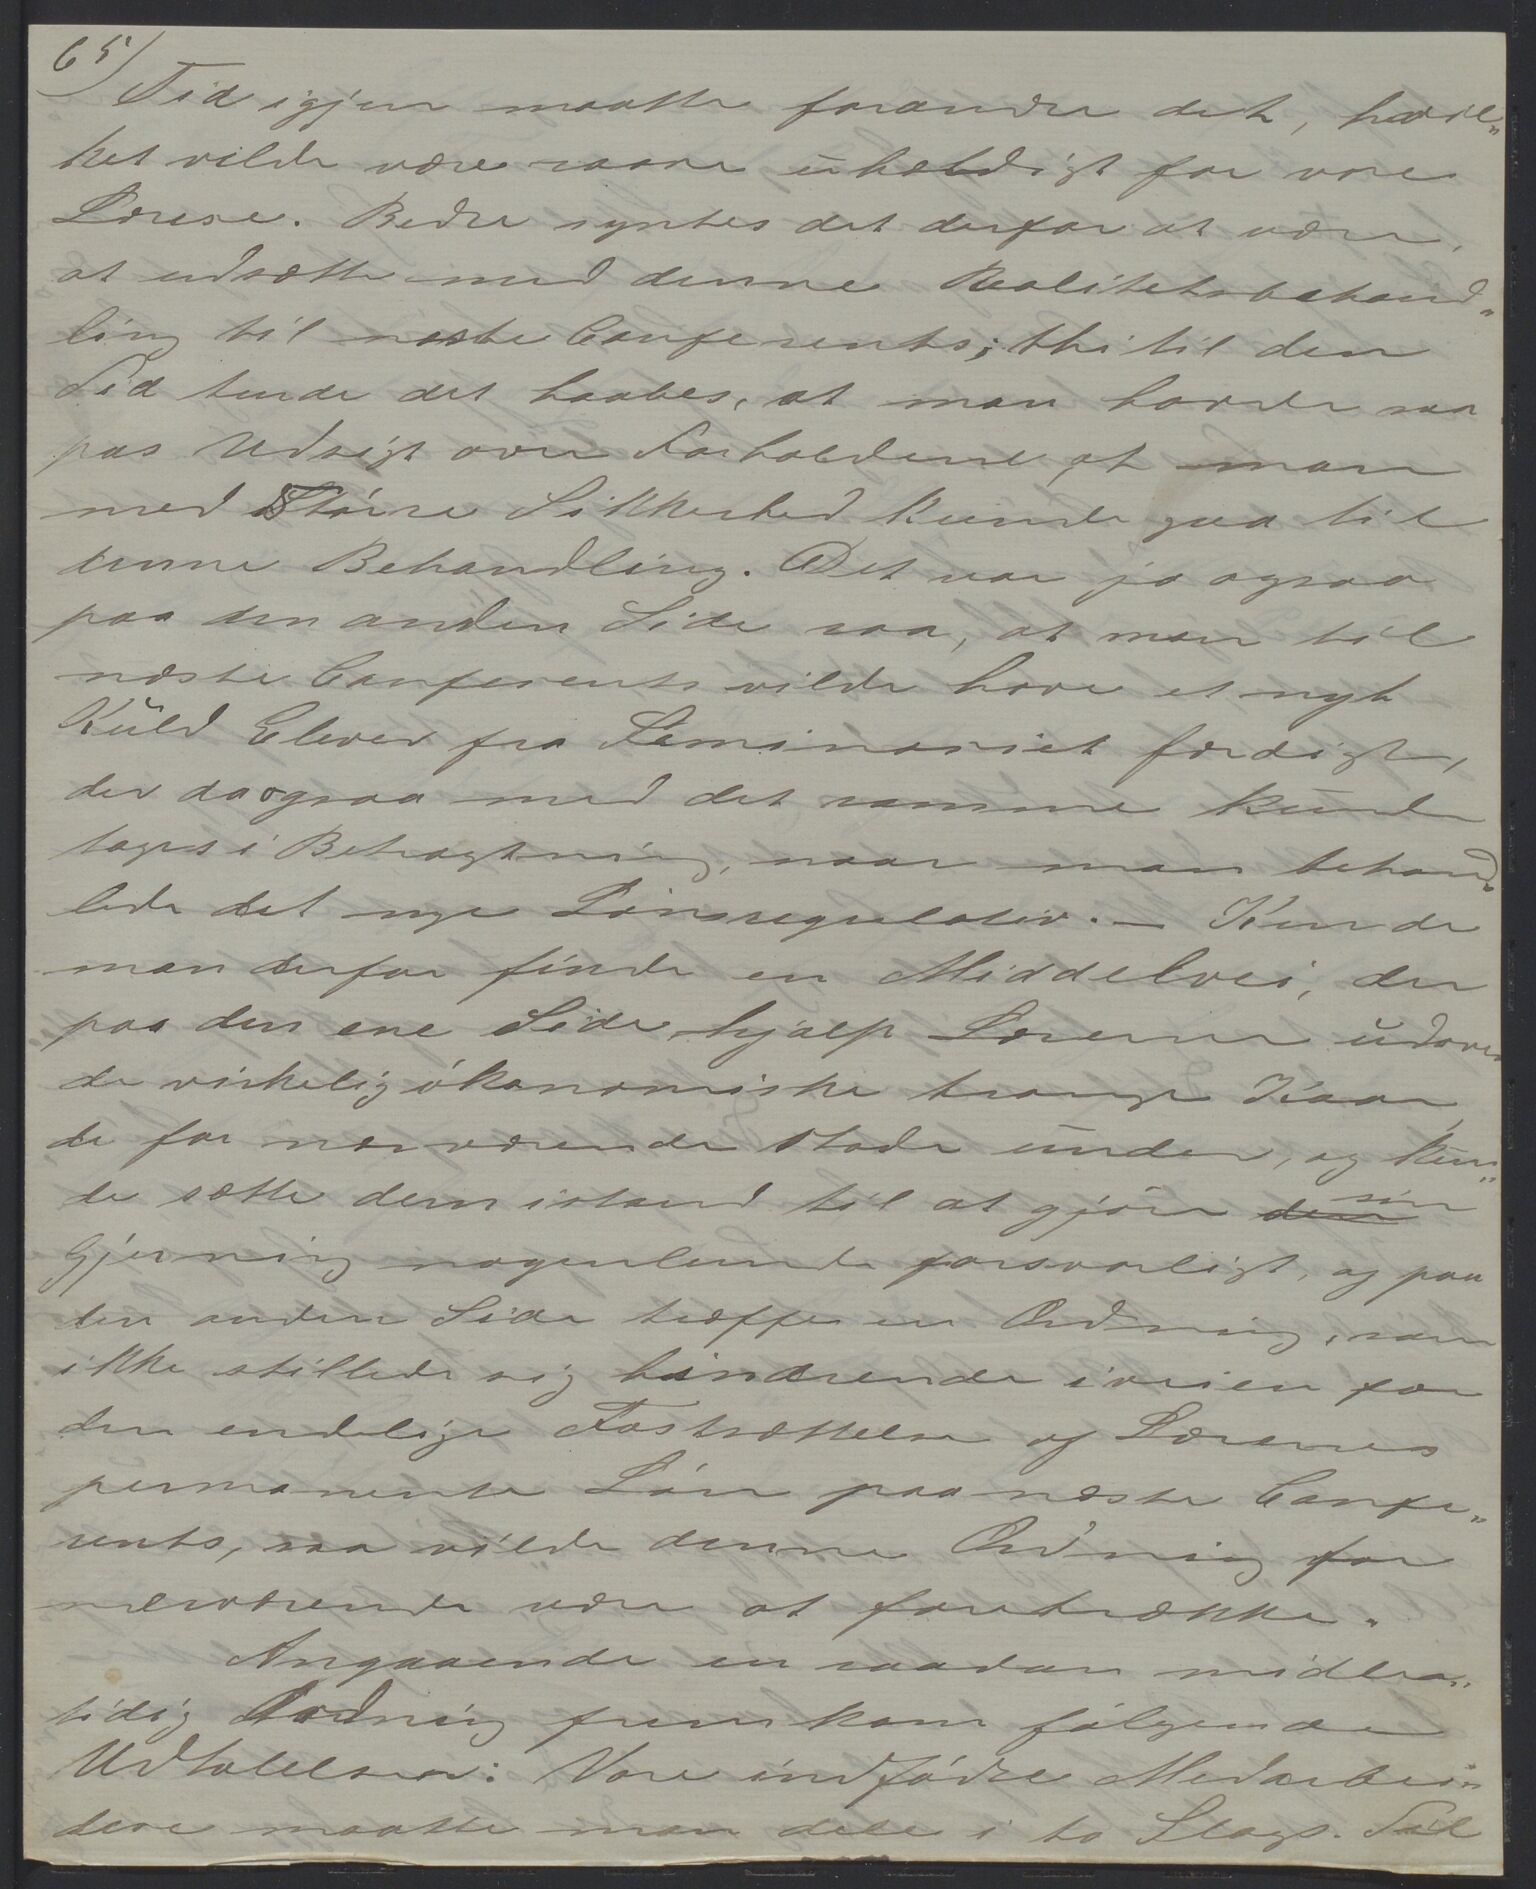 65)
Tid igjen maatte forandre det, hvil„
ket vilde være saare uheldigt for vore
Lærere. Bedre syntes det derfor at være,
at udsætte med denne Realitetsbehand„
ling til næste Conferents; thi til den
Tid turde det haabes, at man havde saa
pas Udsigt over Forholdene, at man
med Større Sikkerhed kunde gaa til
denne Behandling. Det var jo ogsaa
paa den anden Side saa, at man til
næste Conferents vilde have et nyt
Kuld Elever fra Seminariet færdigt,
der da ogsaa med det samme kunde
tages i Betragtning, naar man behand„
lede det nye Lønsregulativ. — Kunde
man derfor finde en Middelvei, der
paa den ene Side hjalp Lærerne ud over
de virkelig økonomiske trange Kaar,
de for nærværende stode under, og kun„
de sætte dem istand til at gjøre den sin
Gjerning nogenlunde forsvarligt, og paa
den anden Side træffe en Ordning, som
ikke stillede sig hindrende iveien for
den endelige Fastsættelse af Lærernes
permanente Løn paa næste Confe„
rents, saa vilde denne Ordning for
nærværende være at foretrække.
Angaaende en saadan midler„
tidig Ordning fremkom følgende
Udtalelser: Vore indfødte Medarbei„
dere maatte man dele i to Slags. Til